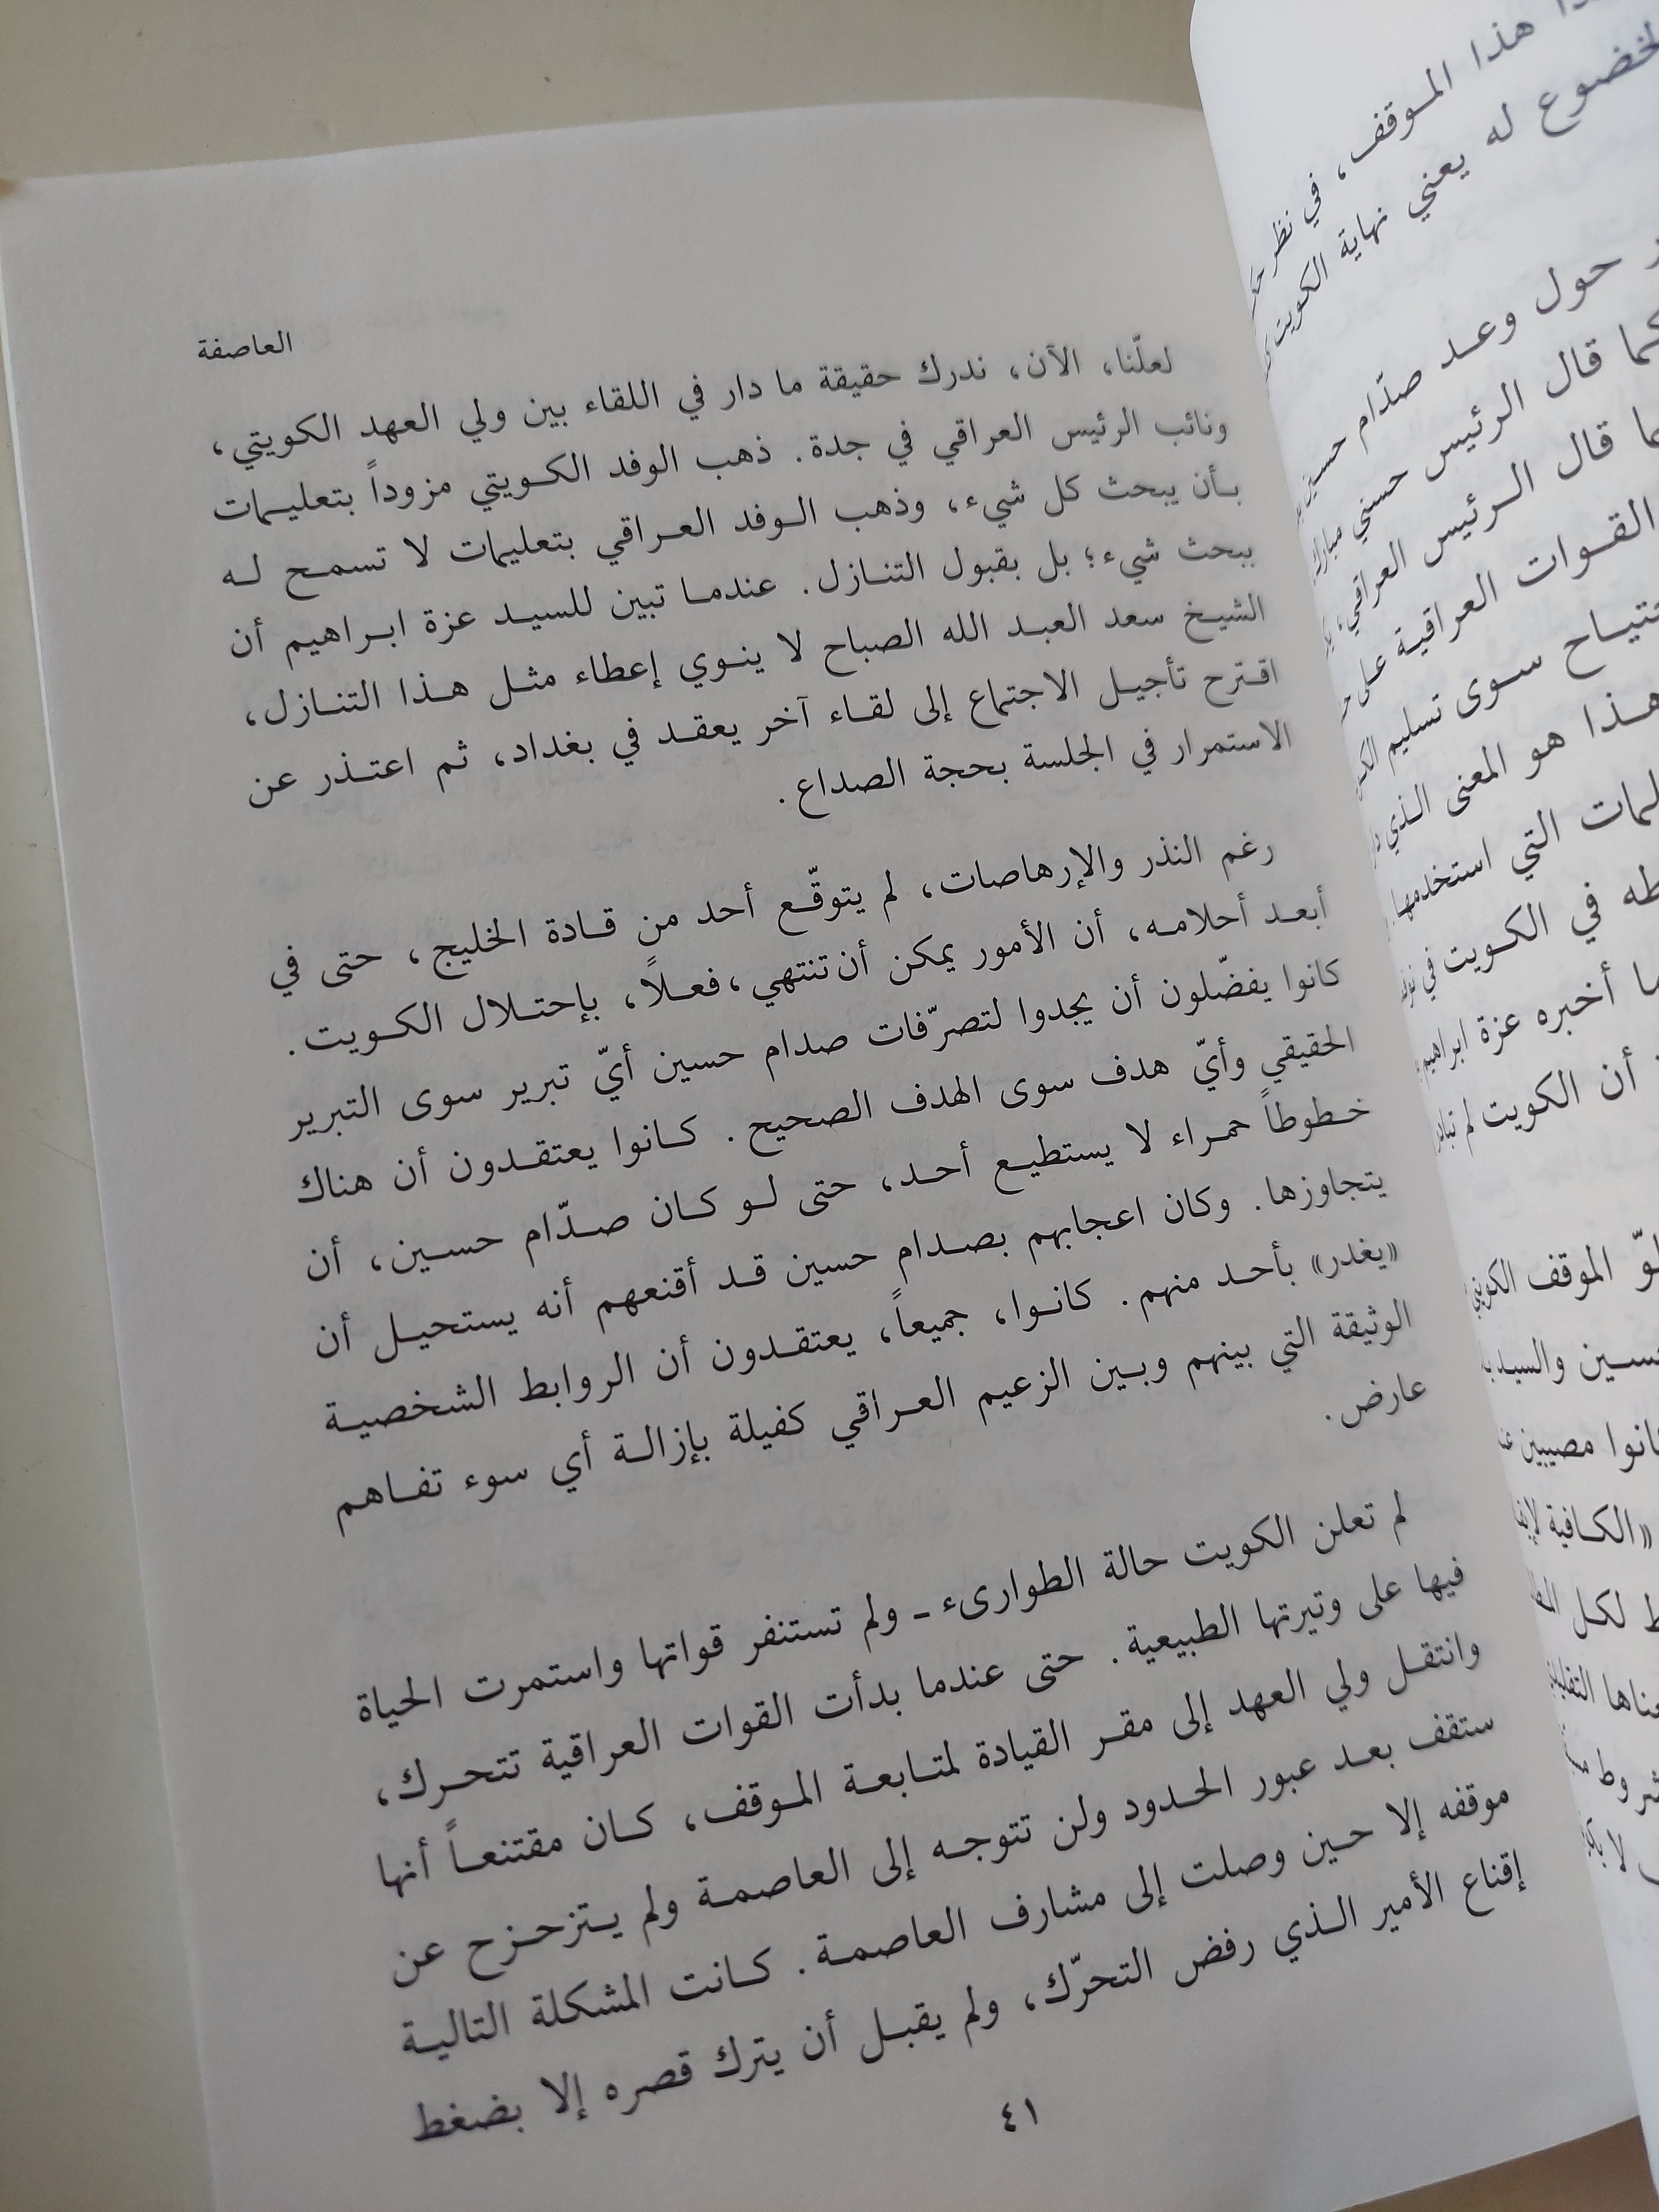 العاصفة
لعلّنا، الآن، ندرك حقيقة ما دار في اللقاء بين ولي العهد الكويتي،
ونائب الرئيس العراقي في جدة. ذهب الوفد الكويتي مزوداً بتعليمات
بأن يبحث كل شيء، وذهب الوفد العراقي بتعليمات لا تسمح له
ببحث شيء؛ بل بقبول التنازل. عندما تبين للسيد عزة ابراهيم أن
الشيخ سعد العبد الله الصباح لا ينوي إعطاء مثل هذا التنازل،
اقترح تأجيل الاجتماع إلى لقاء آخر يعقد في بغداد، ثم اعتذر عن
الاستمرار في الجلسة بحجة الصداع.
رغم النذر والإرهاصات، لم يتوقّع أحد من قادة الخليج، حتى في
أبعد أحلامه، أن الأمور يمكن أن تنتهي، فعلاً، بإحتلال الكويت.
كانوا يفضّلون أن يجدوا لتصرّفات صدام حسين أيّ تبرير سوى التبرير
الحقيقي وأيّ هدف سوى الهدف الصحيح. كانوا يعتقدون أن هناك
خطوطاً حمراء لا يستطيع أحد، حتى لو كان صدّام حسين، أن
يتجاوزها. وكان اعجابهم بصدام حسين قد أقنعهم أنه يستحيل أن
«يغدر» بأحد منهم. كانوا، جميعاً، يعتقدون أن الروابط الشخصية
الوثيقة التي بينهم وبين الزعيم العراقي كفيلة بإزالة أي سوء تفاهم
عارض.
لم تعلن الكويت حالة الطوارىء ـ ولم تستنفر قواتها واستمرت الحياة
فيها على وتيرتها الطبيعية. حتى عندما بدأت القوات العراقية تتحرك،
وانتقل ولي العهد إلى مقر القيادة لمتابعة الموقف، كان مقتنعاً أنها
ستقف بعد عبور الحدود ولن تتوجه إلى العاصمة ولم يتزحزح عن
موقفه إلا حين وصلت إلى مشارف العاصمة. كانت المشكلة التالية
إقناع الأمير الذي رفض التحرّك، ولم يقبل أن يترك قصره إلا بضغط
٤١
هذا الموقف، في نظر
له يعني نهاية الكويت
حول وعد صدّام حسين
كما قال الرئيس حسني مبارك
قال الرئيس العراقي،
القوات العراقية على
سوى تسليم
هذا هو المعنى الذي
التي استخدمها
في الكويت في
أخبره عزة ابراهيم
أن الكويت لم
الموقف الكويتي
والسيد
مصيبين
«الكافية
لكل
لا